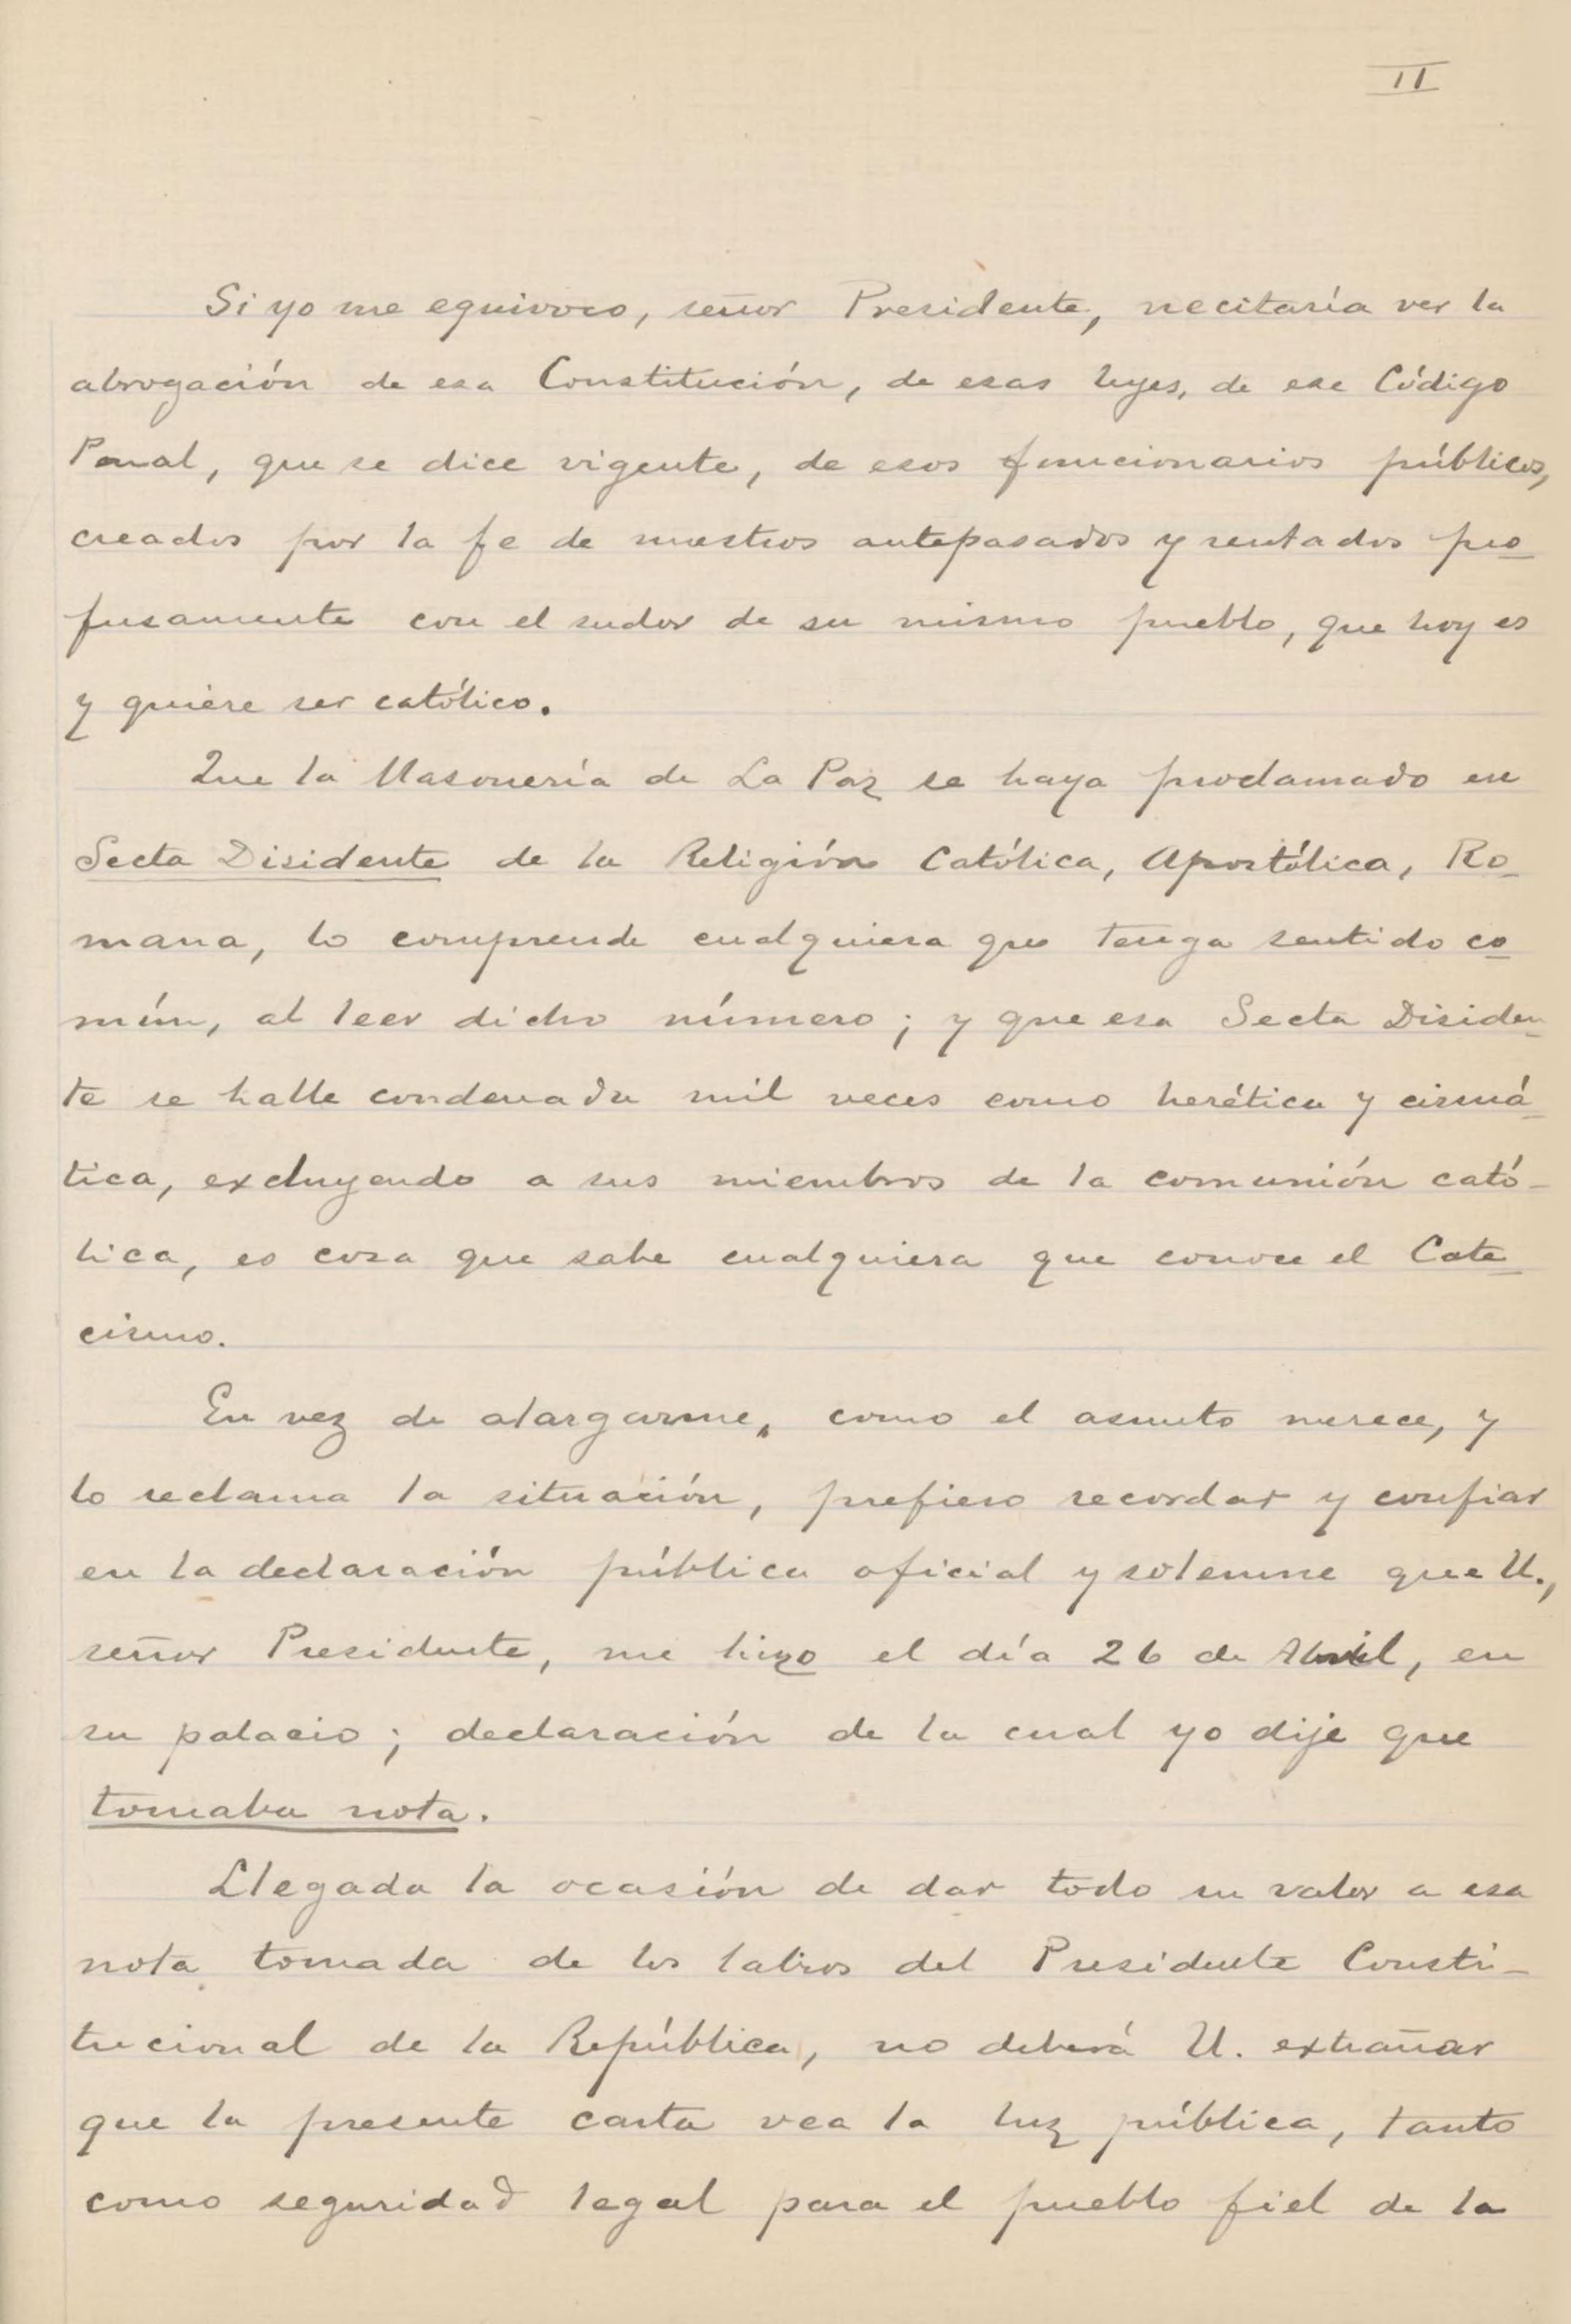 II
Si yo me equivoco, señor Presidente, necitaría ver la
abrogación de esa Constitución, de esas leyes, de ese Código
Penal, que se dice vigente, de esos funcionarios públicos,
creados por la fe de nuestros antepasados y rentados pro
fusamente con el sudor de su mismo pueblo, que hoy es
y quiere ser católico.
Que la Masonería de La Paz se haya proclamado en
Secta Disidente de la Religión Católica, Apostólica, Ro
mana, lo comprende cualquiera que tenga sentido co
mún, al leer dicho número; y que esa Secta Disiden
te se halle condenada mil veces como herética y cismá
tica, excluyendo a sus miembros de la comunión cató-
lica, es cosa que sabe cualquiera que conoce el Cate
cismo.
En vez de alargarme, como el asunto merece, y
lo reclama la situación, prefiero recordar y confiar
en la declaración pública oficial y solemne que U.,
señor Presidente, me hizo el día 26 de Abril, en
su palacio; declaración de la cual yo dije que
tomaba nota.
Llegada la ocasión de dar todo su valor a esa
nota tomada de los labios del Presidente Consti-
tucional de la República, no deberá U. extrañar
que la presente carta vea la luz pública, tanto
como seguridad legal para el pueblo fiel de la